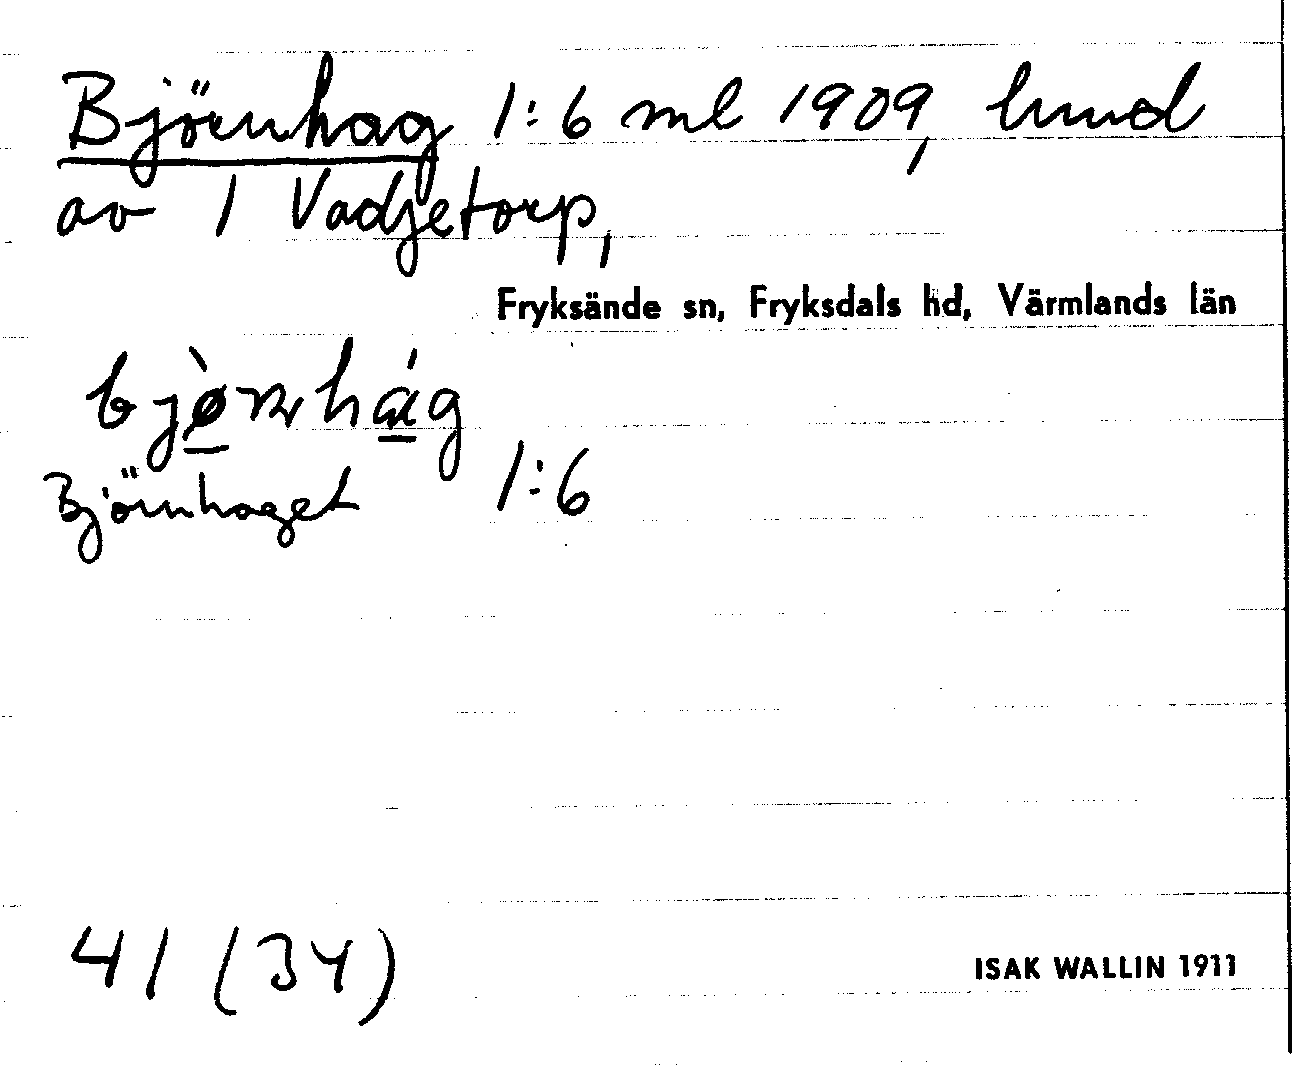 Björnhag 1:6 ml 1909, hmd
av 1 Vadjetorp,
Fryksände sn, Fryksdals hd, Värmlands län
bjø̀ṇhág
Björnhaget 1:6
41 (34)
ISAK WALLIN 1911